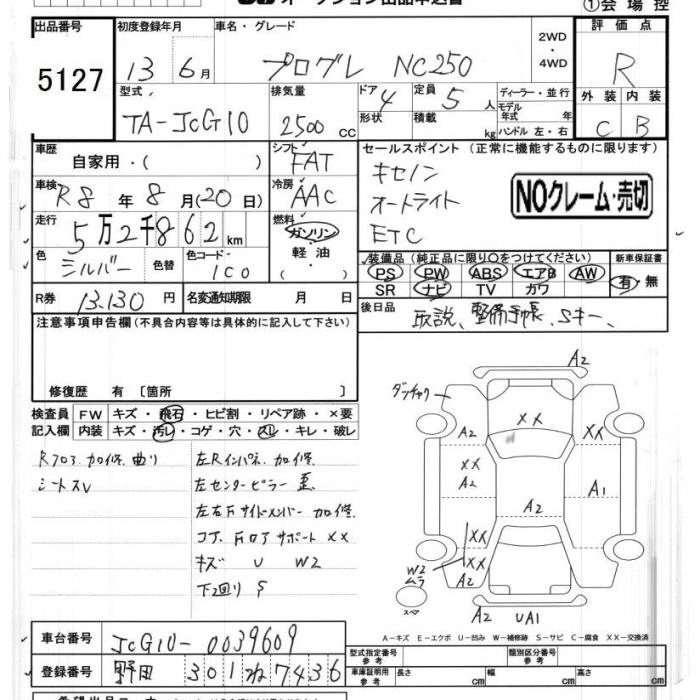 オークション出品申込書
①会場控
出品番号
5127
初度登録年月
13年 6月
車名・グレード
プログレ NC250
2WD
・
4WD
評価点
R
外装 内装
C B
型式
TA-JCG10
排気量
2500 CC
ドア
4
形状
定員
5人
積載
kg
ディーラー・並行
モデル年式 年
ハンドル 左・右
車歴
自家用・( )
シフト
FAT
セールスポイント (正常に機能するものに限ります)
キセノン
オートライト
ETC
NOクレーム・売切
車検
R8年8月(20日)
冷房
AAC
走行
5万2千862km
燃料
ガソリン
・
軽油
・( )
色
シルバー
色替
色コード
1C0
装備品 (純正品に限り○をつけてください)
PS PW ABS エアB AW
SR ナビ TV カワ
新車保証書
有・無
R券
13.130円
名変通知期限 月 日
後日品
取説、整備手帳、Sキー、
注意事項申告欄 (不具合内容等は具体的に記入して下さい)
修復歴 有 〔箇所 〕
検査員記入欄
FW キズ・飛石・ヒビ割・リペア跡・×要
内装 キズ・汚レ・コゲ・穴・スレ・キレ・破レ
Rフロア 加修 曲り
シートSV
左Rインパネ 加修
左センターピラー 歪
左右Fサイドメンバー 加修
コア、Fロアサポート XX
キズ U W2
下回り S
A2
ダッチャク
XX
A2
XX
XX
A2
A1
A2
XX
XX
A2
W2
ムラ
スペア
A2 UA1
A-キズ E-エクボ U-凹み W-補修跡 S-サビ C-腐食 XX-交換済
車台番号
JCG10-0039609
登録番号
野田 301 ね 7436
型式指定番号
参考
類別区分番号
参考
車庫証明用
参考
長さ cm 幅 cm 高さ cm